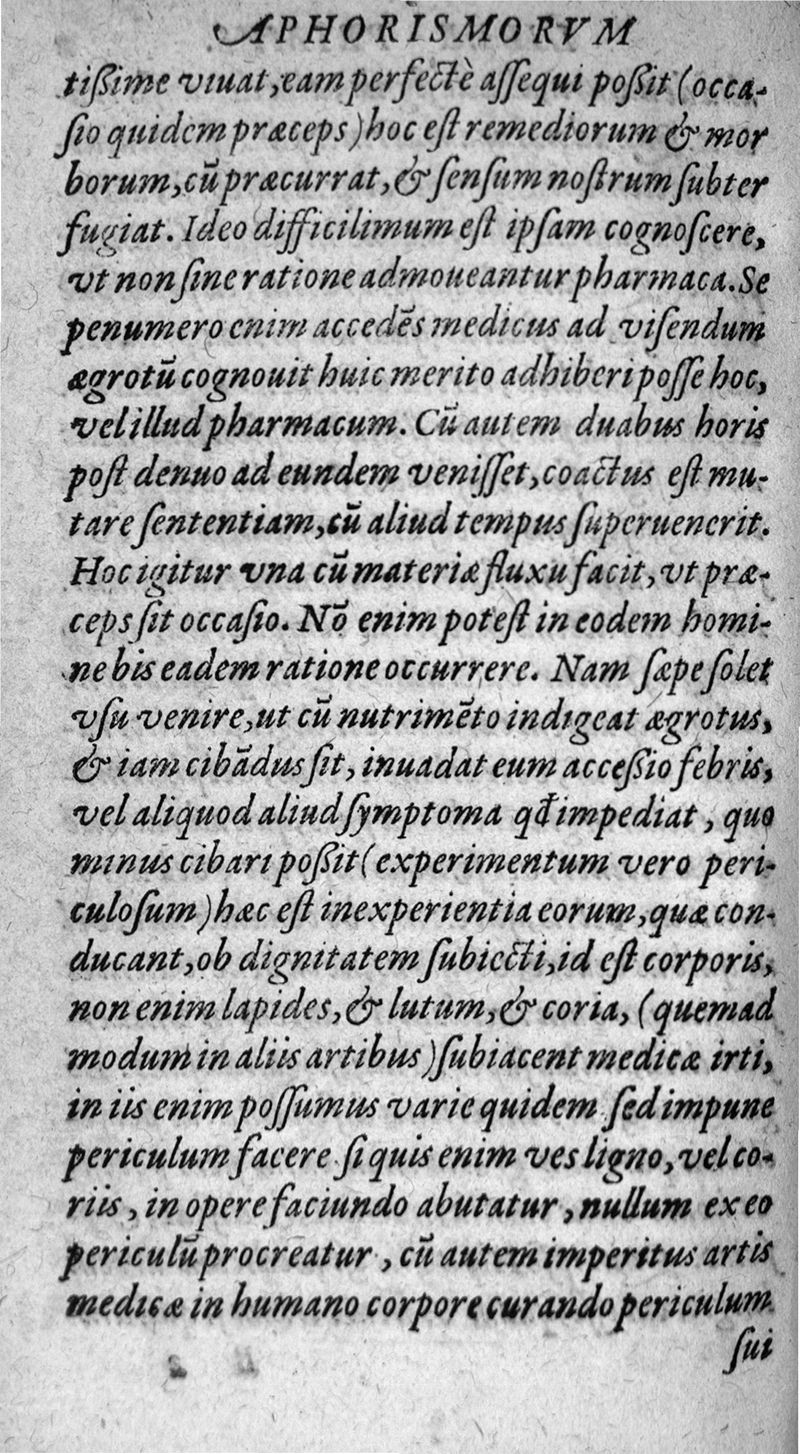 APHORISMORVM
tißime viuat, eam perfectè aſſequi poßit (occa-
ſio quidem præceps) hoc eſt remediorum & mor
borum, cũ præcurrat, & ſenſum noſtrum ſubter
fugiat. Ideo difficilimum eſt ipſam cognoſcere,
vt non ſine ratione admoueantur pharmaca. Se
penumero enim accedẽs medicus ad viſendum
ægrotũ cognouit huic merito adhiberi poſſe hoc,
vel illud pharmacum. Cũ autem duabus horis
poſt denuo ad eundem veniſſet, coactus eſt mu-
tare ſententiam, cũ aliud tempus ſuperuenerit.
Hoc igitur vna cũ materiæ fluxu facit, vt præ-
ceps ſit occaſio. Nõ enim poteſt in eodem homi-
ne bis eadem ratione occurrere. Nam ſæpe ſolet
vſu venire, ut cũ nutrimẽto indigeat ægrotus,
& iam cibãdus ſit, inuadat eum acceßio febris,
vel aliquod aliud ſymptoma qđ impediat, quo
minus cibari poßit (experimentum vero peri-
culoſum) hæc eſt inexperientia eorum, quæ con-
ducant, ob dignitatem ſubiecti, id eſt corporis,
non enim lapides, & lutum, & coria, (quemad
modum in aliis artibus) ſubiacent medicæ irti,
in iis enim poſſumus varie quidem ſed impune
periculum facere ſi quis enim ves ligno, vel co-
riis, in opere faciundo abutatur, nullum ex eo
periculũ procreatur, cũ autem imperitus artis
medicæ in humano corpore curando periculum
ſui